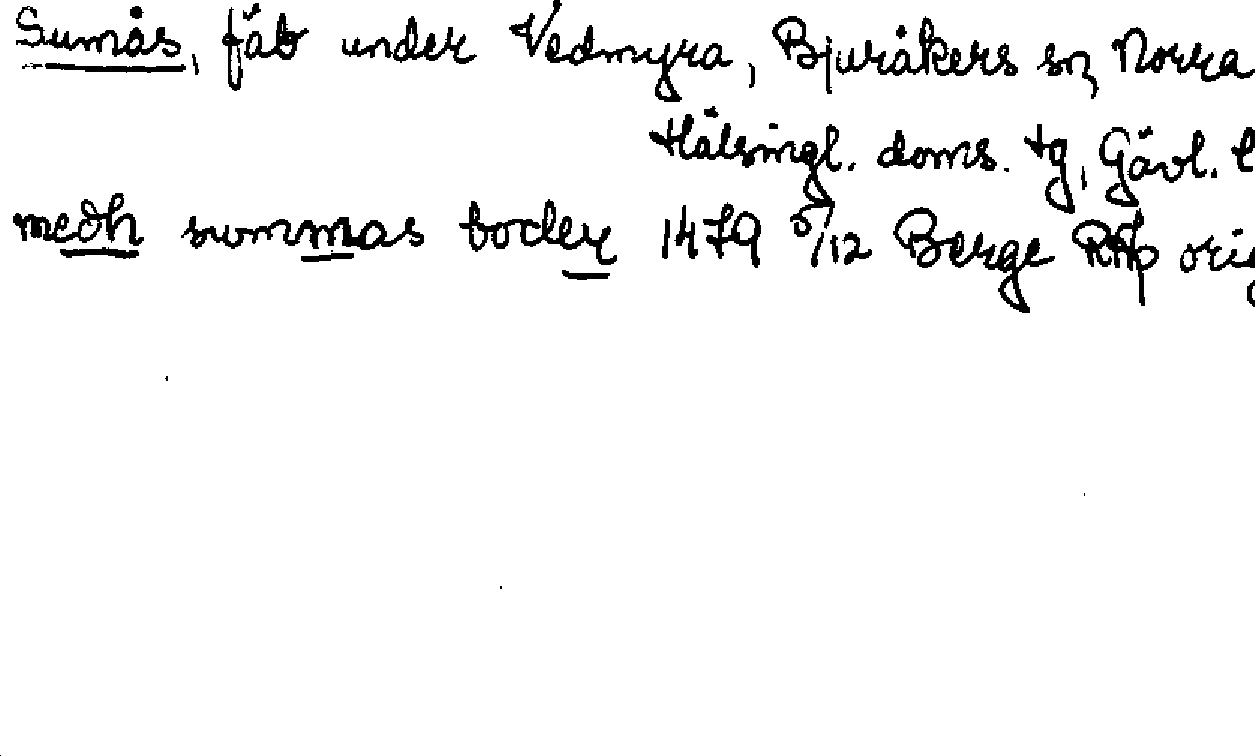 Sumås, fäb under Vedmyra, Bjuråkers sn, Norra
Hälsingl. doms. tg, Gävl. l
medh summas boder 1479 5/12 Berge RAp orig